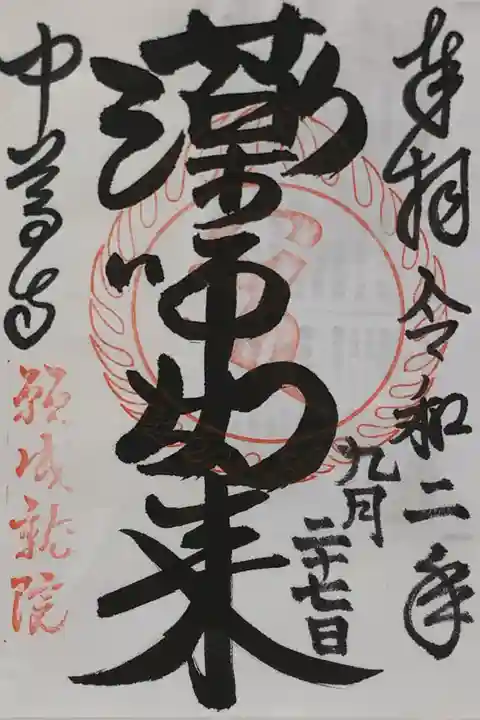 奉拝 令和二年
九月
二十七日
薬师如来
中尊寺
願成就院